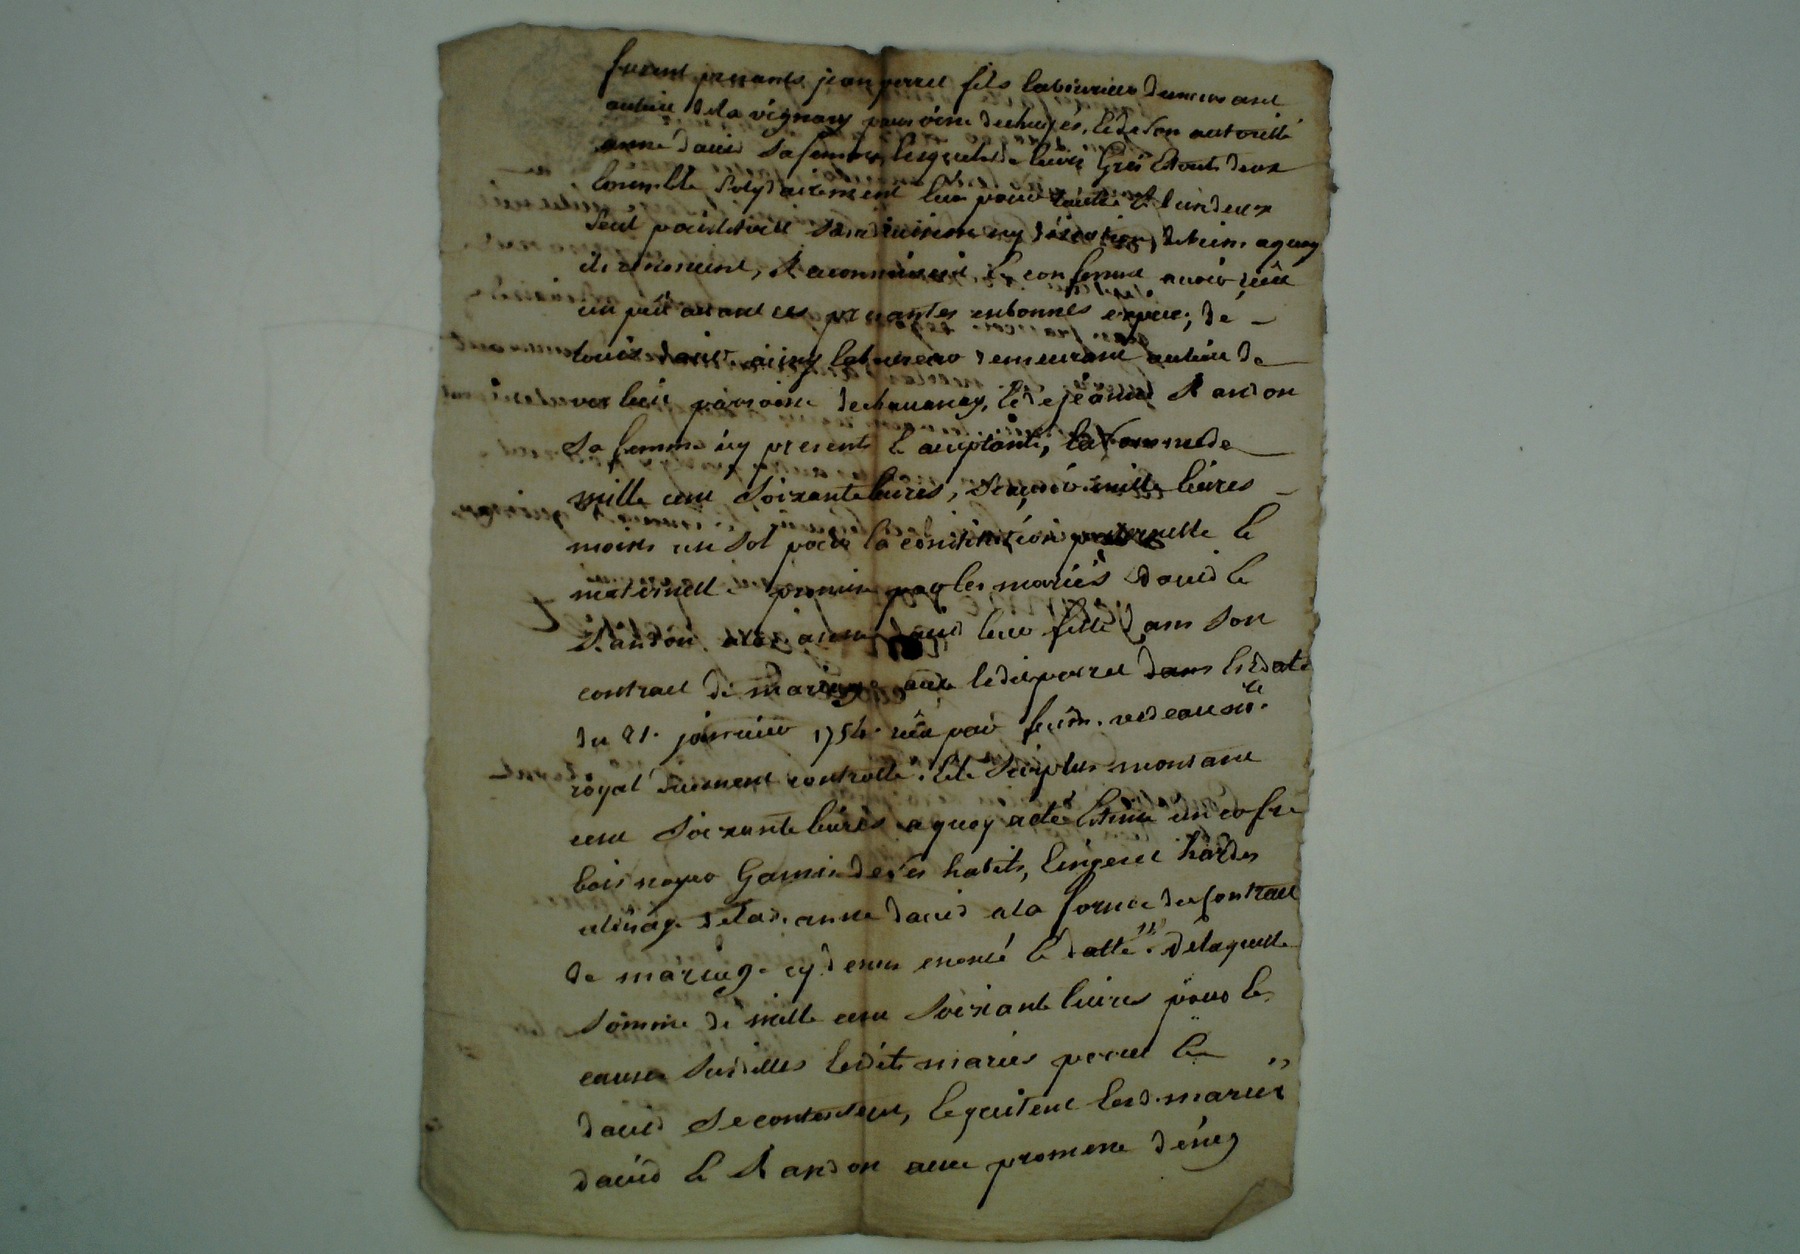 furent presants jean perret fils laboureur demeurant
au lieu de la vignary paroisse de huyés, & de son autorité
anne david sa femme lesquels de leurs gréz & tout deux
ensemble solydairement l'un pour l'autre & l'un deux
seul pour le tout sans division ny discution, de biens a quoy
ils renoncent, Reconnoissent & confessent avoir reçû
un peû avant ces presantes en bonnes espece, de
louis david ainé laboureur demeurant au lieu de
verlieu parroisse de chavanay, & de jeanne Randon
sa femme icy presents & aceptants, la somme de
mille cent soixante livres, sçavoir mille livres
moins un sol pour la constitution paternelle &
maternelle promise par les mariés david &
Randon a anne david leur fille dans son
contract de mariage avec ledit perret dans sa date
du 21. janvier 1754. reçû par feu me. vedeau nore.
royal duement controllé. & le surplus montant
cent soixante livres a quoy a été estimé un cofre
bois noyer garni de ses habits, linge et hardes
a l'usage de lad. anne david a la forme du contract
de mariage cy dessus enoncé & datté. de laquelle
somme de mille cent soixante livres pour les
causes susdittes lesdits mariés perret &
david se contentent, & quitent lesd. mariés
david & Randon avec promesse de n'en